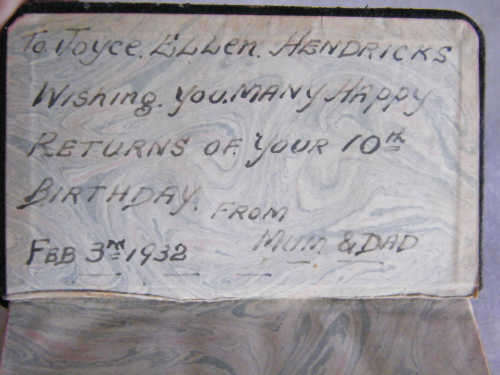 To. Joyce. ELLen. HENDRICKS
Wishing. you. MANY HAppy
RETURNS OF. YOUR 10th
BIRTHDAY.
FROM
FEB 3rd 1932
MUM & DAD